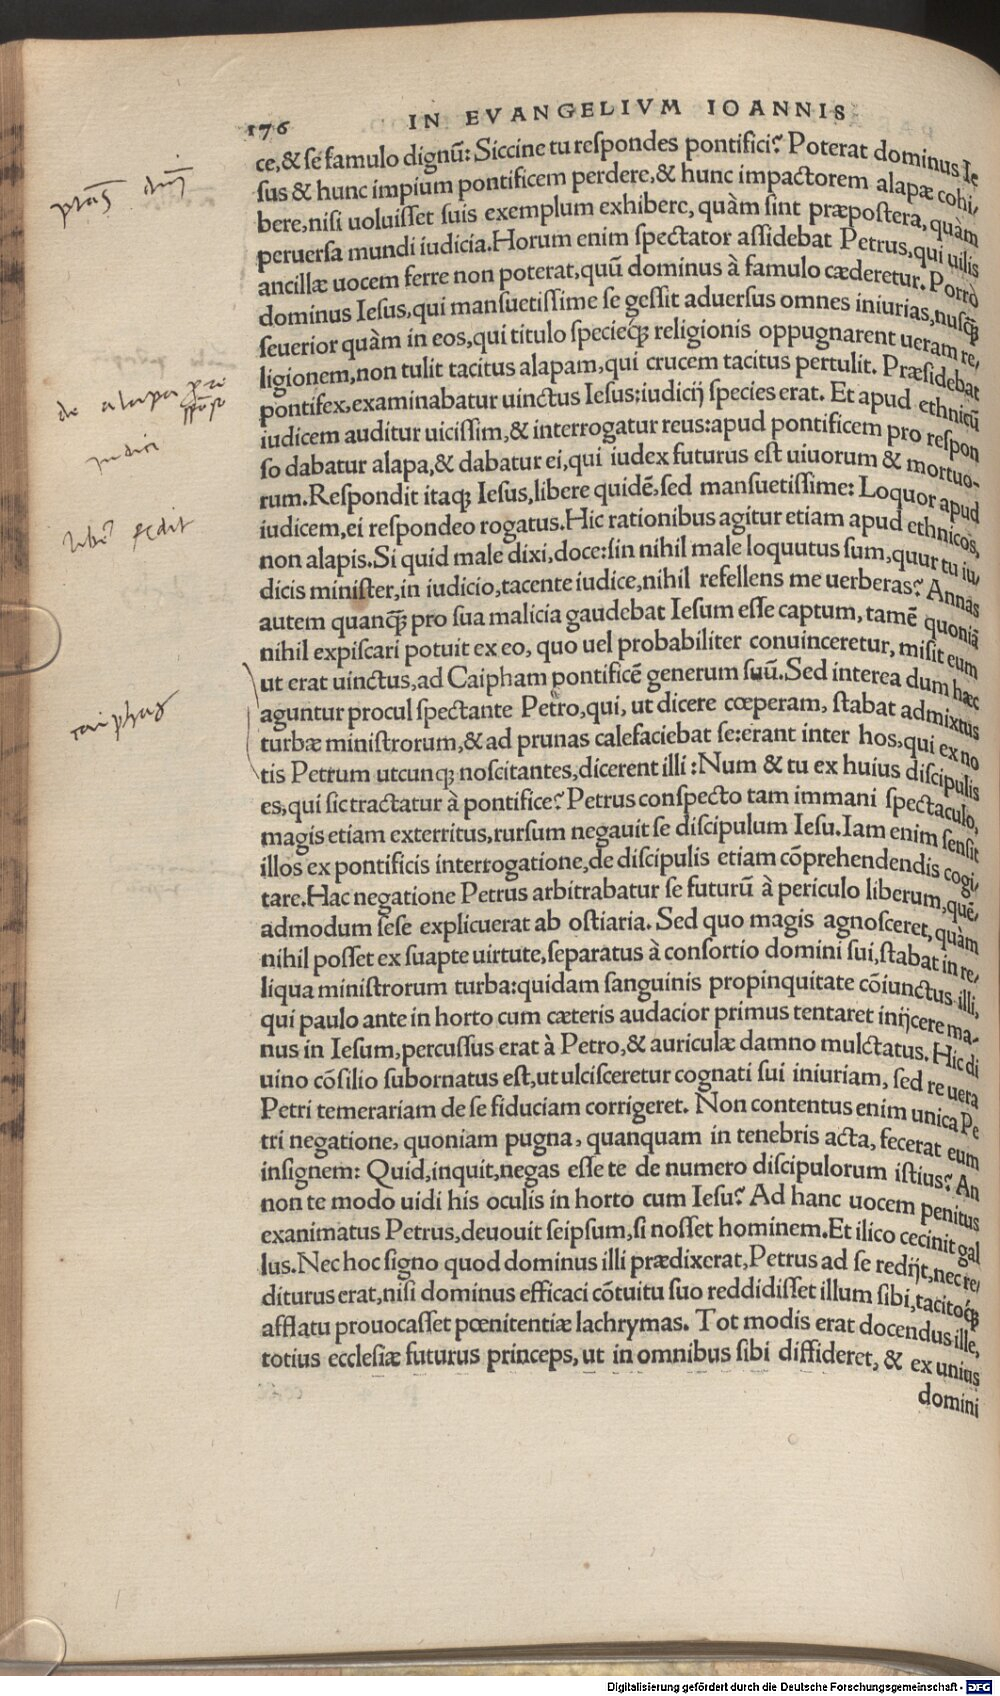 176 IN EVANGELIVM IOANNIS
ce,& se famulo dignũ: Siccine tu respondes pontifici? Poterat dominus Ie
sus & hunc impium pontificem perdere,& hunc impactorem alapæ cohi/
bere,nisi uoluisset suis exemplum exhibere, quàm sint præpostera, quàm
peruersa mundi iudicia.Horum enim spectator assidebat Petrus,qui uilis
ancillæ uocem ferre non poterat,quũ dominus à famulo cæderetur. Porrò
dominus Iesus,qui mansuetissime se gessit aduersus omnes iniurias,nusq̃
seuerior quàm in eos,qui titulo specieq́; religionis oppugnarent ueram re/
ligionem,non tulit tacitus alapam,qui crucem tacitus pertulit. Præsidebat
pontifex,examinabatur uinctus Iesus:iudicij species erat. Et apud ethnicũ
iudicem auditur uicissim,& interrogatur reus:apud pontificem pro respon
so dabatur alapa,& dabatur ei,qui iudex futurus est uiuorum & mortuo-
rum.Respondit itaq; Iesus,libere quidẽ,sed mansuetissime: Loquor apud
iudicem,ei respondeo rogatus.Hic rationibus agitur etiam apud ethnicos,
non alapis.Si quid male dixi,doce:sin nihil male loquutus sum,quur tu iu/
dicis minister,in iudicio,tacente iudice,nihil refellens me uerberas? Annas
autem quanq̃ pro sua malicia gaudebat Iesum esse captum, tamẽ quoniã
nihil expiscari potuit ex eo, quo uel probabiliter conuinceretur, misit eum
ut erat uinctus,ad Caipham pontificẽ generum suũ.Sed interea dum hæc
aguntur procul spectante Petro,qui, ut dicere cœperam, stabat admixtus
turbæ ministrorum,& ad prunas calefaciebat se:erant inter hos,qui ex no
tis Petrum utcunq; noscitantes,dicerent illi :Num & tu ex huius discipulis
es,qui sic tractatur à pontifice? Petrus conspecto tam immani spectaculo,
magis etiam exterritus,rursum negauit se discipulum Iesu.Iam enim sensit
illos ex pontificis interrogatione,de discipulis etiam cõprehendendis cogi/
tare.Hac negatione Petrus arbitrabatur se futurũ à periculo liberum,quẽ/
admodum sese explicuerat ab ostiaria. Sed quo magis agnosceret, quàm
nihil posset ex suapte uirtute,separatus à consortio domini sui,stabat in re/
liqua ministrorum turba:quidam sanguinis propinquitate cõiunctus illi,
qui paulo ante in horto cum cæteris audacior primus tentaret inijcere ma-
nus in Iesum,percussus erat à Petro,& auriculæ damno mulctatus. Hic di
uino cõsilio subornatus est,ut ulcisceretur cognati sui iniuriam, sed re uera
Petri temerariam de se fiduciam corrigeret. Non contentus enim unica Pe
tri negatione, quoniam pugna, quanquam in tenebris acta, fecerat eum
insignem: Quid,inquit,negas esse te de numero discipulorum istius? An
non te modo uidi his oculis in horto cum Iesu? Ad hanc uocem penitus
exanimatus Petrus,deuouit seipsum,si nosset hominem.Et ilico cecinit gal
lus.Nec hoc signo quod dominus illi prædixerat,Petrus ad se redijt,nec re/
diturus erat,nisi dominus efficaci cõtuitu suo reddidisset illum sibi,tacitoq́;
afflatu prouocasset pœnitentiæ lachrymas. Tot modis erat docendus ille,
totius ecclesiæ futurus princeps, ut in omnibus sibi diffideret, & ex unius
domini
de alapa
judici
caiphas
Digitalisierung gefördert durch die Deutsche Forschungsgemeinschaft - DFG